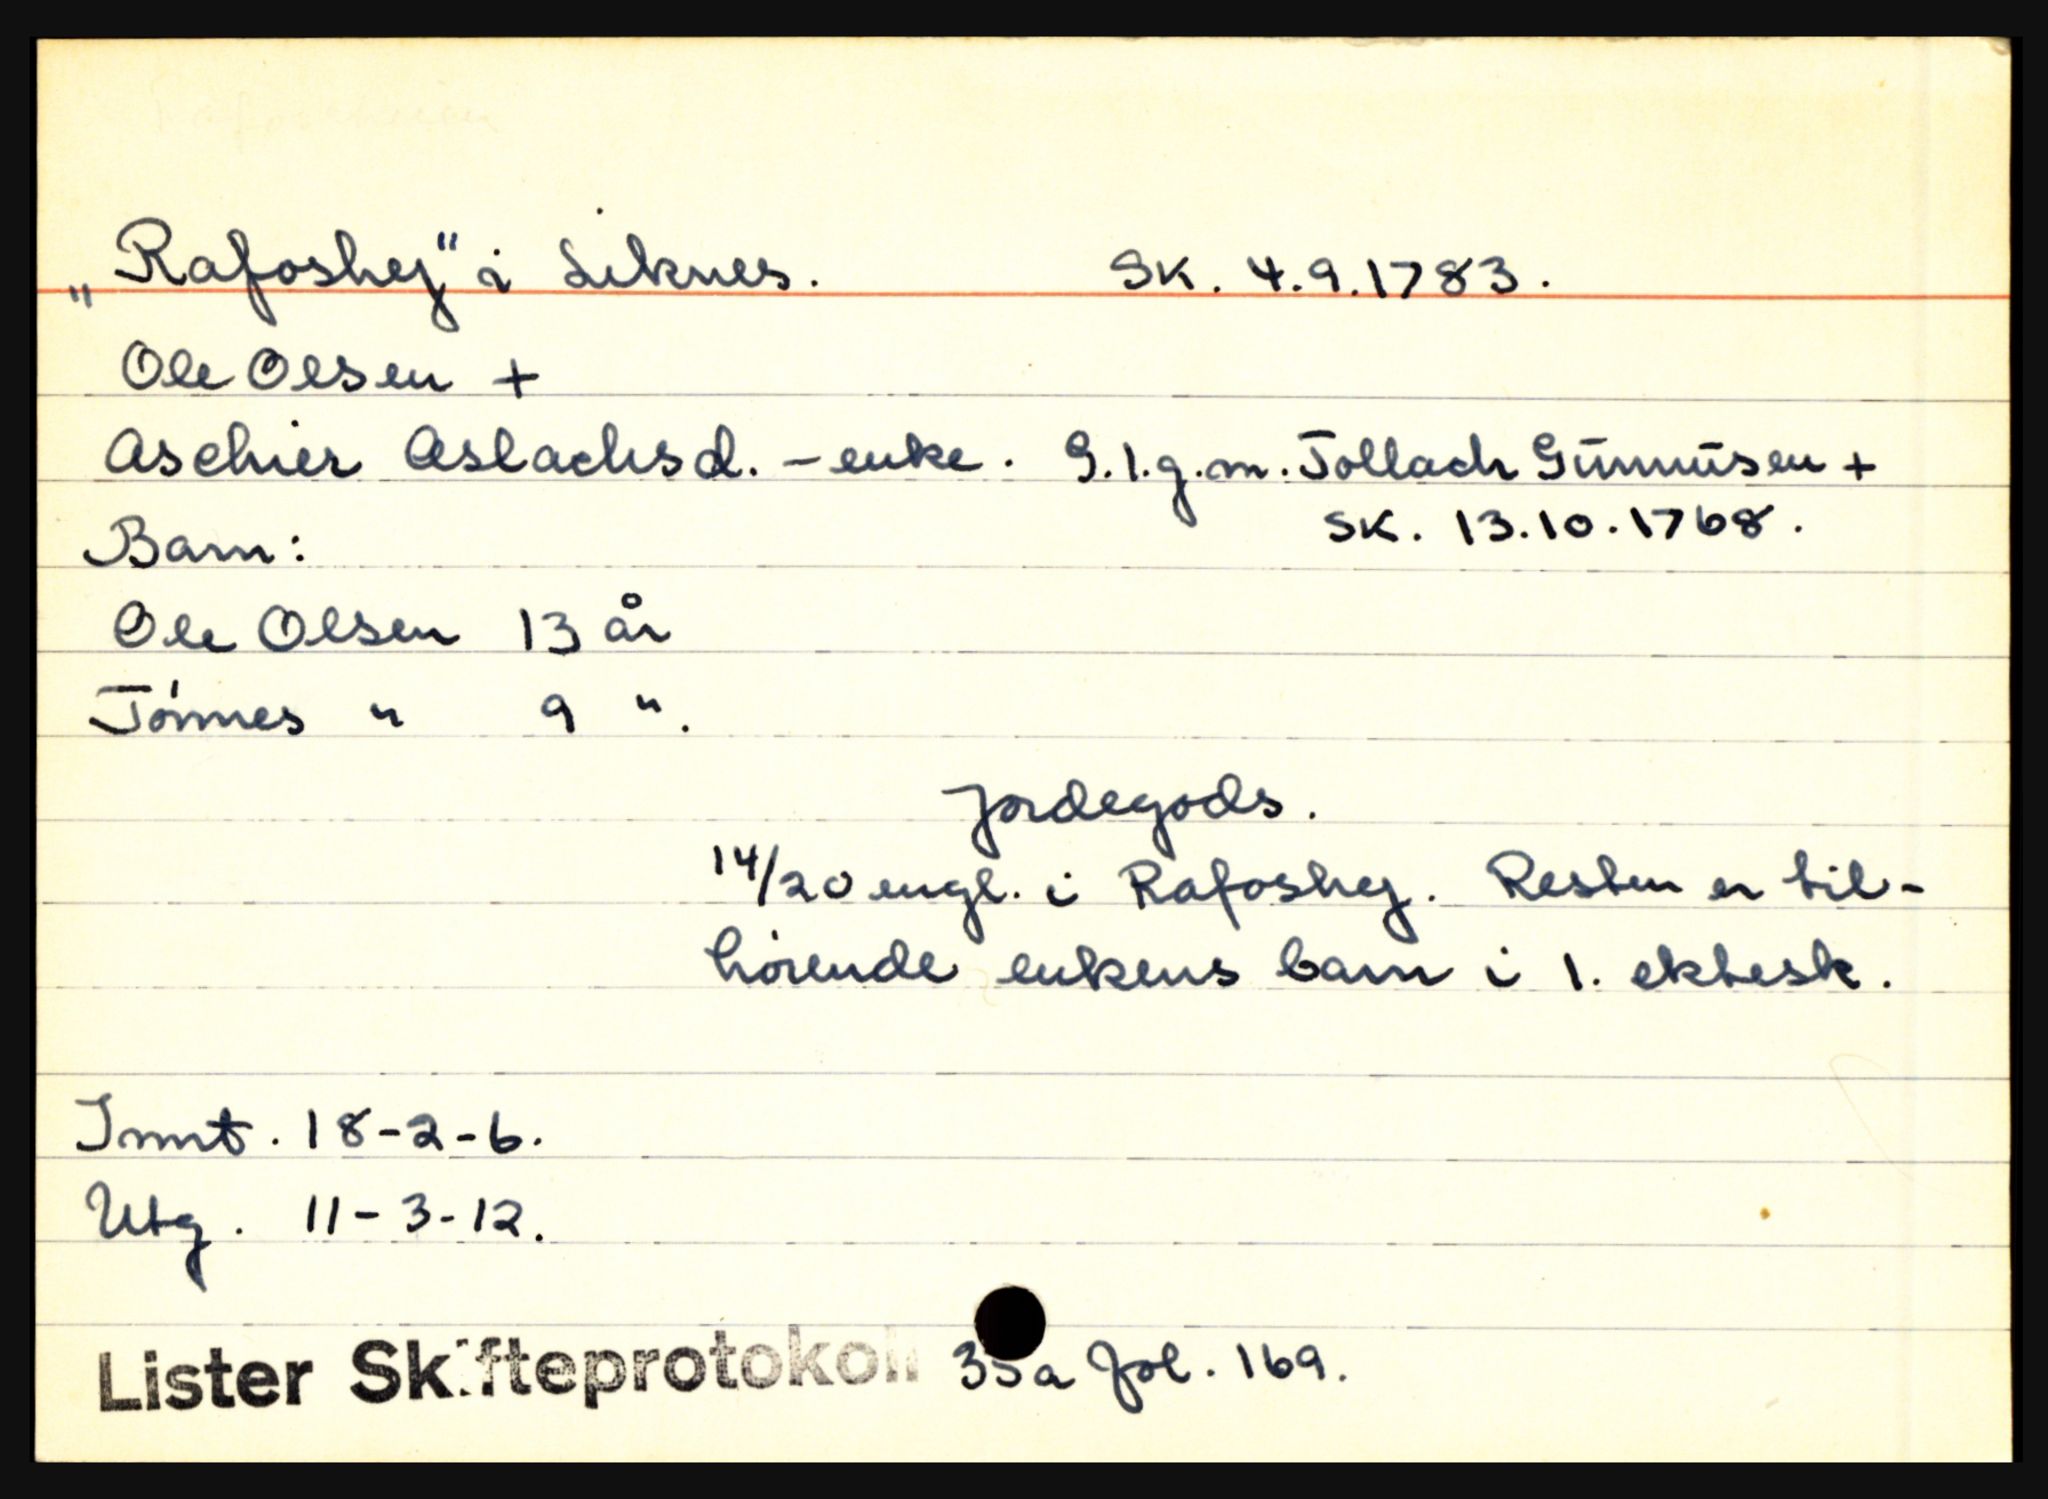 „Rafoshej" i Liknes. SK. 4.9.1783.
Ole Olsen +
Aschier Aslachsd. - enke. G.1.g.m. Tollach Gunnusen +
SK. 13.10.1768.
Barn:
Ole Olsen 13 år
Tønnes " 9 ".
Jordegods.
14/20 engl. i Rafoshej. Resten er til-
hørende enkens barn i 1. ektesk.
Innt. 18-2-6.
Utg. 11-3-12.
Lister Skifteprotokoll 35a fol. 169.